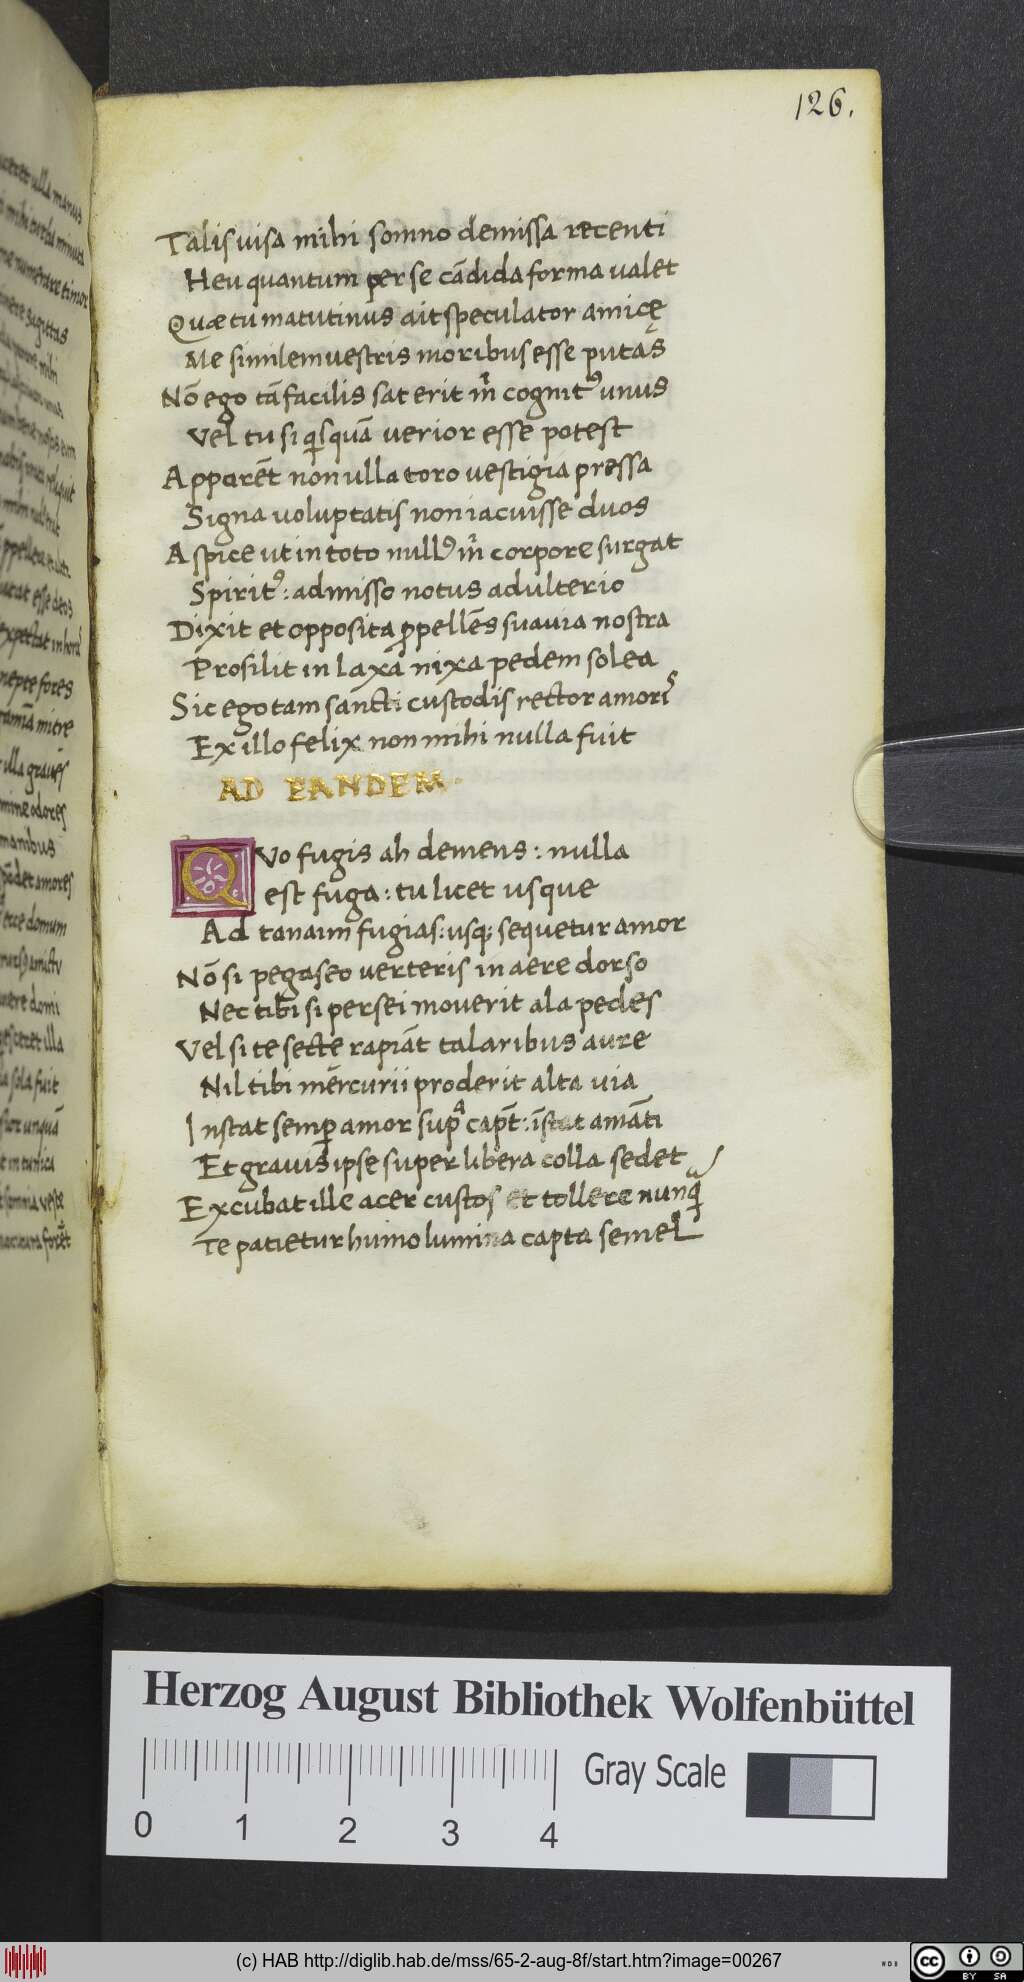 126.
Talis visa mihi somno demissa recenti
Heu quantum per se cãdida forma valet
Quæ tu matutinus ait speculator amicę
Me similem vestris moribus esse putas
Nõ ego tã facilis sat erit m̊ cognitꝰ unus
Vel tu si qisquã verior esse potest
Apparẽt non ulla toro vestigia pressa
Signa voluptatis non iacuisse duos
Aspice ut in toto nullꝰ m̊ corpore surgat
Spiritꝰ: admisso notus adulterio
Dixit et opposita ꝓpellẽs suavia nostra
Prosilit in laxã nixa pedem solea
Sic ego tam sancti custodis rector amoris
Ex illo felix non mihi nulla fuit
AD EANDEM.
QVo fugis ah demens: nulla
est fuga: tu licet usque
Ad tanaim fugias: usq; sequetur amor
Nõ si pegaseo verteris in aere dorso
Nec tibi si persei moverit ala pedes
Vel si te secte rapiãt talaribus aure
Nil tibi mercurii proderit alta via
Instat semꝑ amor supra capt̃: ĩstat amãti
Et gravis ipse super libera colla sedet
Excubat ille acer custos et tollere nunq̃
Te patietur humo lumina capta semel
Herzog August Bibliothek Wolfenbüttel
0 1 2 3 4
Gray Scale
(c) HAB http://diglib.hab.de/mss/65-2-aug-8f/start.htm?image=00267
WDB
cc BY SA